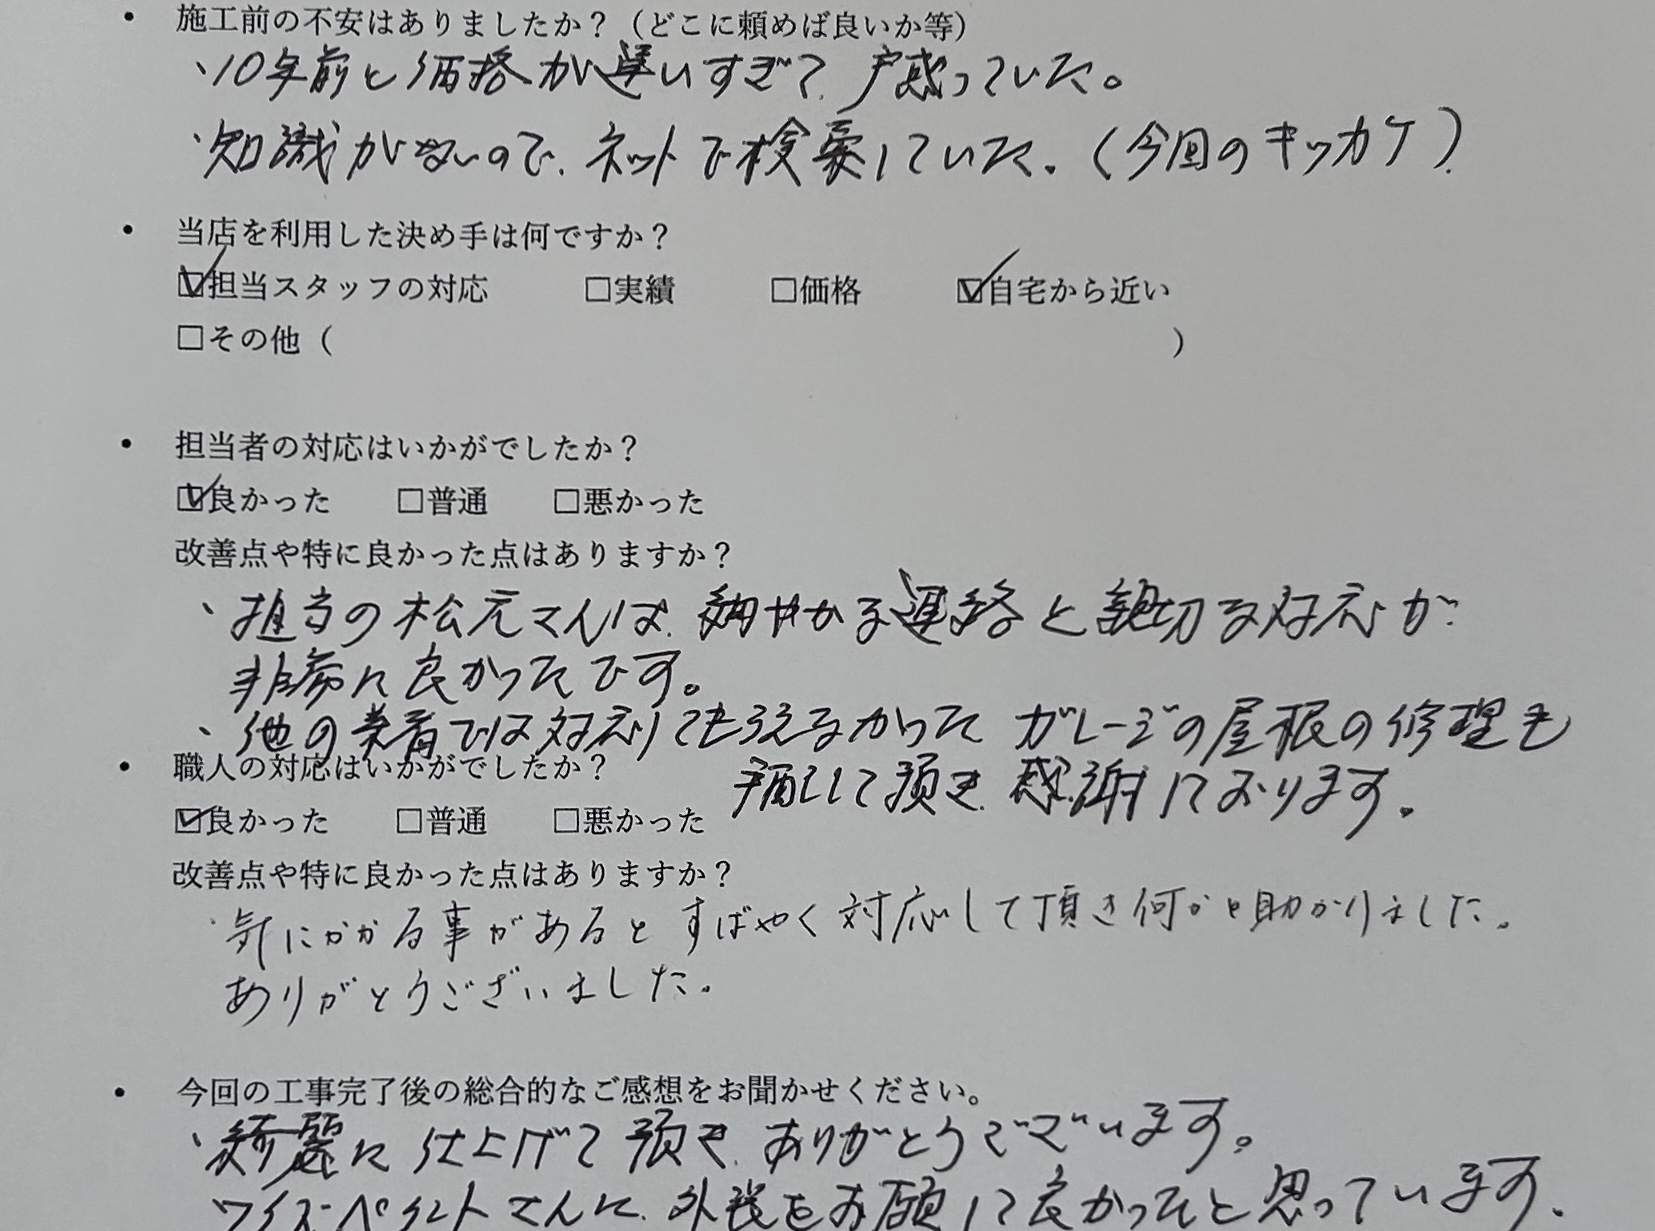 ・ 施工前の不安はありましたか？（どこに頼めば良いか等）
、10年前と価格が違いすぎて、戸惑っていた。
、知識がないので、ネットで検索していた。（今回のキッカケ）
・ 当店を利用した決め手は何ですか？
☑担当スタッフの対応 □実績 □価格 ☑自宅から近い
□その他（ ）
・ 担当者の対応はいかがでしたか？
☑良かった □普通 □悪かった
改善点や特に良かった点はありますか？
、担当の松元さんは、細やかな連絡と親切な対応が
非常に良かったです。
、他の業者では対応してもらえなかった ガレージの屋根の修理も
・ 職人の対応はいかがでしたか？
して頂き、感謝しております。
☑良かった □普通 □悪かった
改善点や特に良かった点はありますか？
、気にかかる事があるとすばやく対応して頂き何かと助かりました。
ありがとうございました。
・ 今回の工事完了後の総合的なご感想をお聞かせください。
、綺麗に仕上げて頂き、ありがとうございます。
、ワイズ・ペイントさんに、外装をお願いして良かったと思っています。